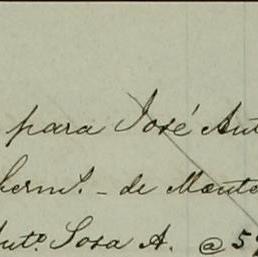 para José Ant
herml. - de Monte
Anto. Sosa A. @ 59